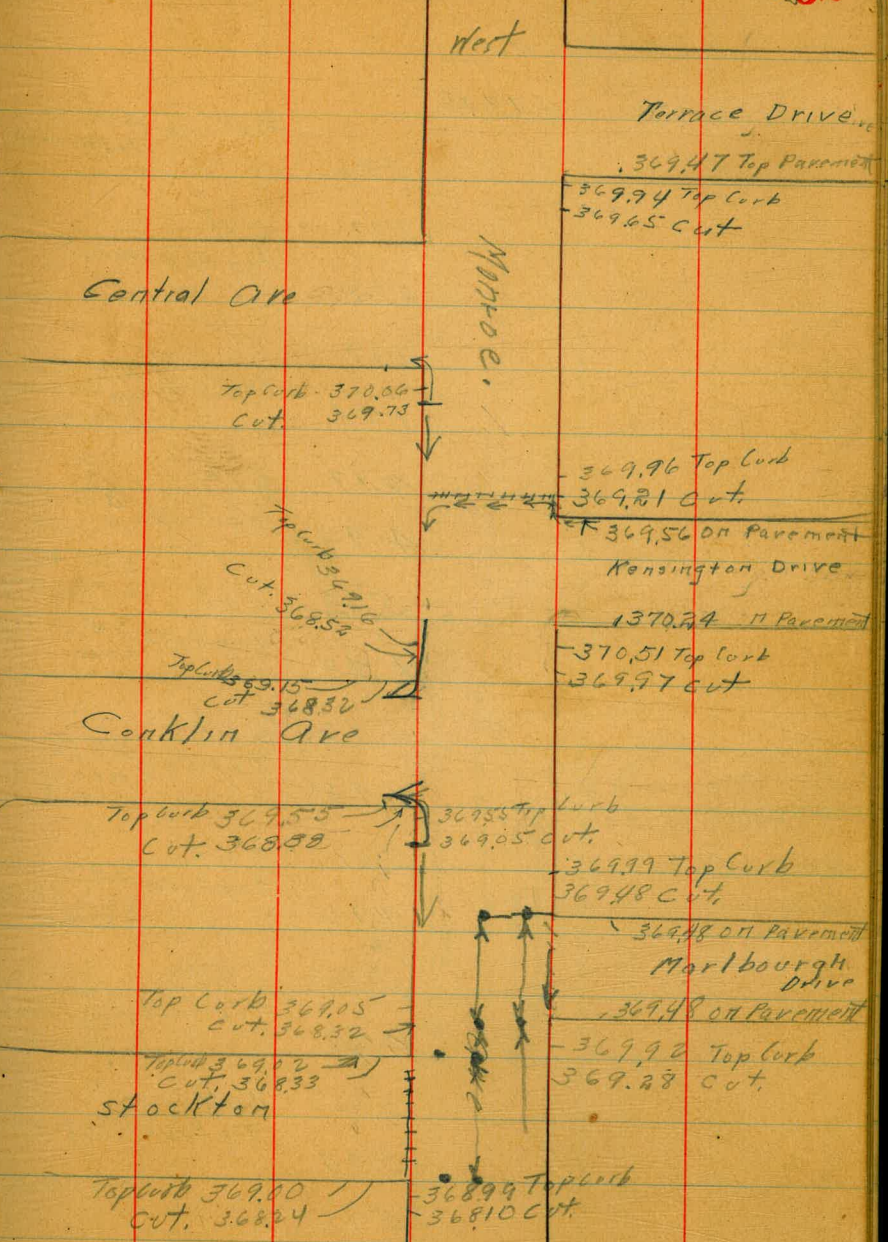 West
Terrace Drive
369.47 Top Pavement
369.94 Top Curb
369.65 Cut
Monroe.
Central Ave
Top Curb 370.06
Cut. 369.73
369.96 Top Curb
369.21 Cut.
369.56 on Pavement
Kensington Drive
Top Curb 369.16
Cut. 368.52
370.24 n Pavement
370.51 Top Curb
369.97 Cut
Top Curb 369.15
Cut 368.32
Conklin Ave
Top Curb 369.55
Cut. 368.88
369.55 Top Curb
369.05 Cut.
369.99 Top Curb
369.48 Cut.
369.48 on Pavement
Marlbourgh
Drive
369.48 on Pavement
Top Curb 369.05
Cut. 368.32
369.92 Top Curb
369.28 Cut.
Top Curb 369.02
Cut. 368.33
Stockton
Top Curb 369.00
Cut. 368.24
368.99 Top Curb
368.10 Cut.